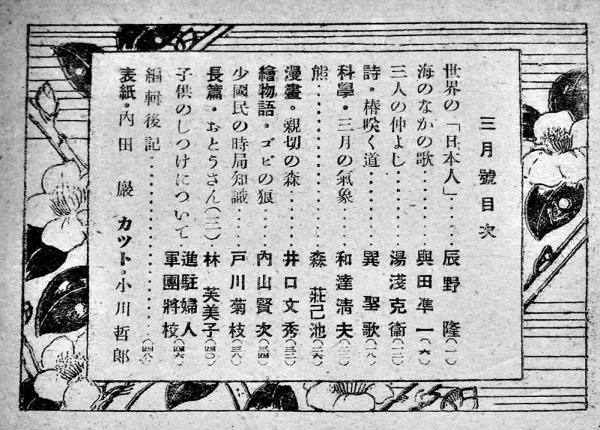 三月號目次
世界の「日本人」‥‥‥辰野 隆(一)
海のなかの歌‥‥‥‥‥與田凖一(六)
三人の仲よし‥‥‥‥‥湯淺克衞(一二)
詩・椿咲く道‥‥‥‥‥巽 聖歌(一八)
科學・三月の氣象‥‥‥和達淸夫(二二)
熊‥‥‥‥‥‥‥‥‥‥森 莊已池(二六)
漫畫・親切の森‥‥‥‥井口文秀(三二)
繪物語・ゴビの狼‥‥‥內山賢次(三四)
少國民の時局知識‥‥‥戸川菊枝(三八)
長篇・おとうさん(三)‥林 芙美子(四〇)
子供のしつけについて‥進駐婦人軍團將校(四六)
編輯後記‥‥‥‥‥‥‥‥‥(四八)
表紙・內田 巖 カツト・小川哲郎